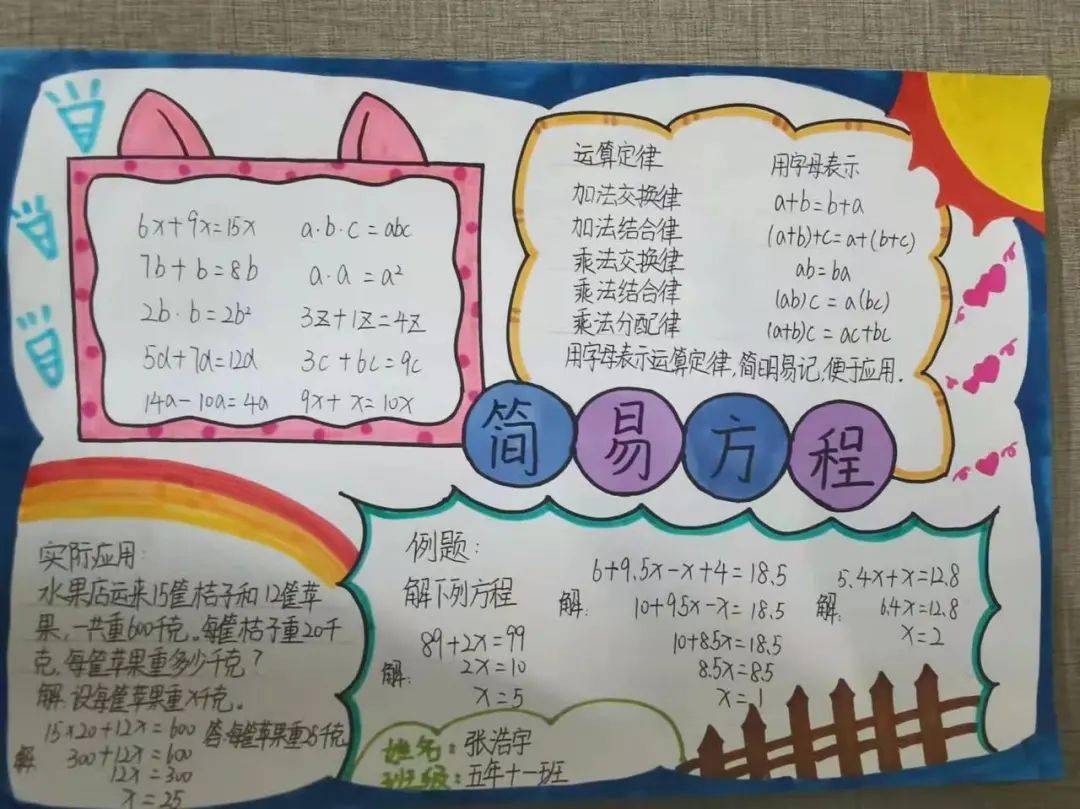 6x+9x=15x a·b·c=abc
7b+b=8b a·a=a²
2b·b=2b² 3z+1z=4z
5a+7a=12a 3c+6c=9c
14a-10a=4a 9x+x=10x
运算定律 用字母表示
加法交换律 a+b=b+a
加法结合律 (a+b)+c=a+(b+c)
乘法交换律 ab=ba
乘法结合律 (ab)c=a(bc)
乘法分配律 (a+b)c=ac+bc
用字母表示运算定律,简明易记,便于应用.
简易方程
实际应用:
水果店运来15筐桔子和12筐苹
果,一共重600千克。每筐桔子重20千
克,每筐苹果重多少千克?
解:设每筐苹果重x千克。
15×20+12x=600
解 300+12x=600
12x=300
x=25
答:每筐苹果重25千克
例题:
解下列方程
89+2x=99
解: 2x=10
x=5
6+9.5x-x+4=18.5
解: 10+95x-x=18.5
10+8.5x=18.5
8.5x=8.5
x=1
5.4x+x=12.8
解: 6.4x=12.8
x=2
姓名:张浩宇
班级:五年十一班